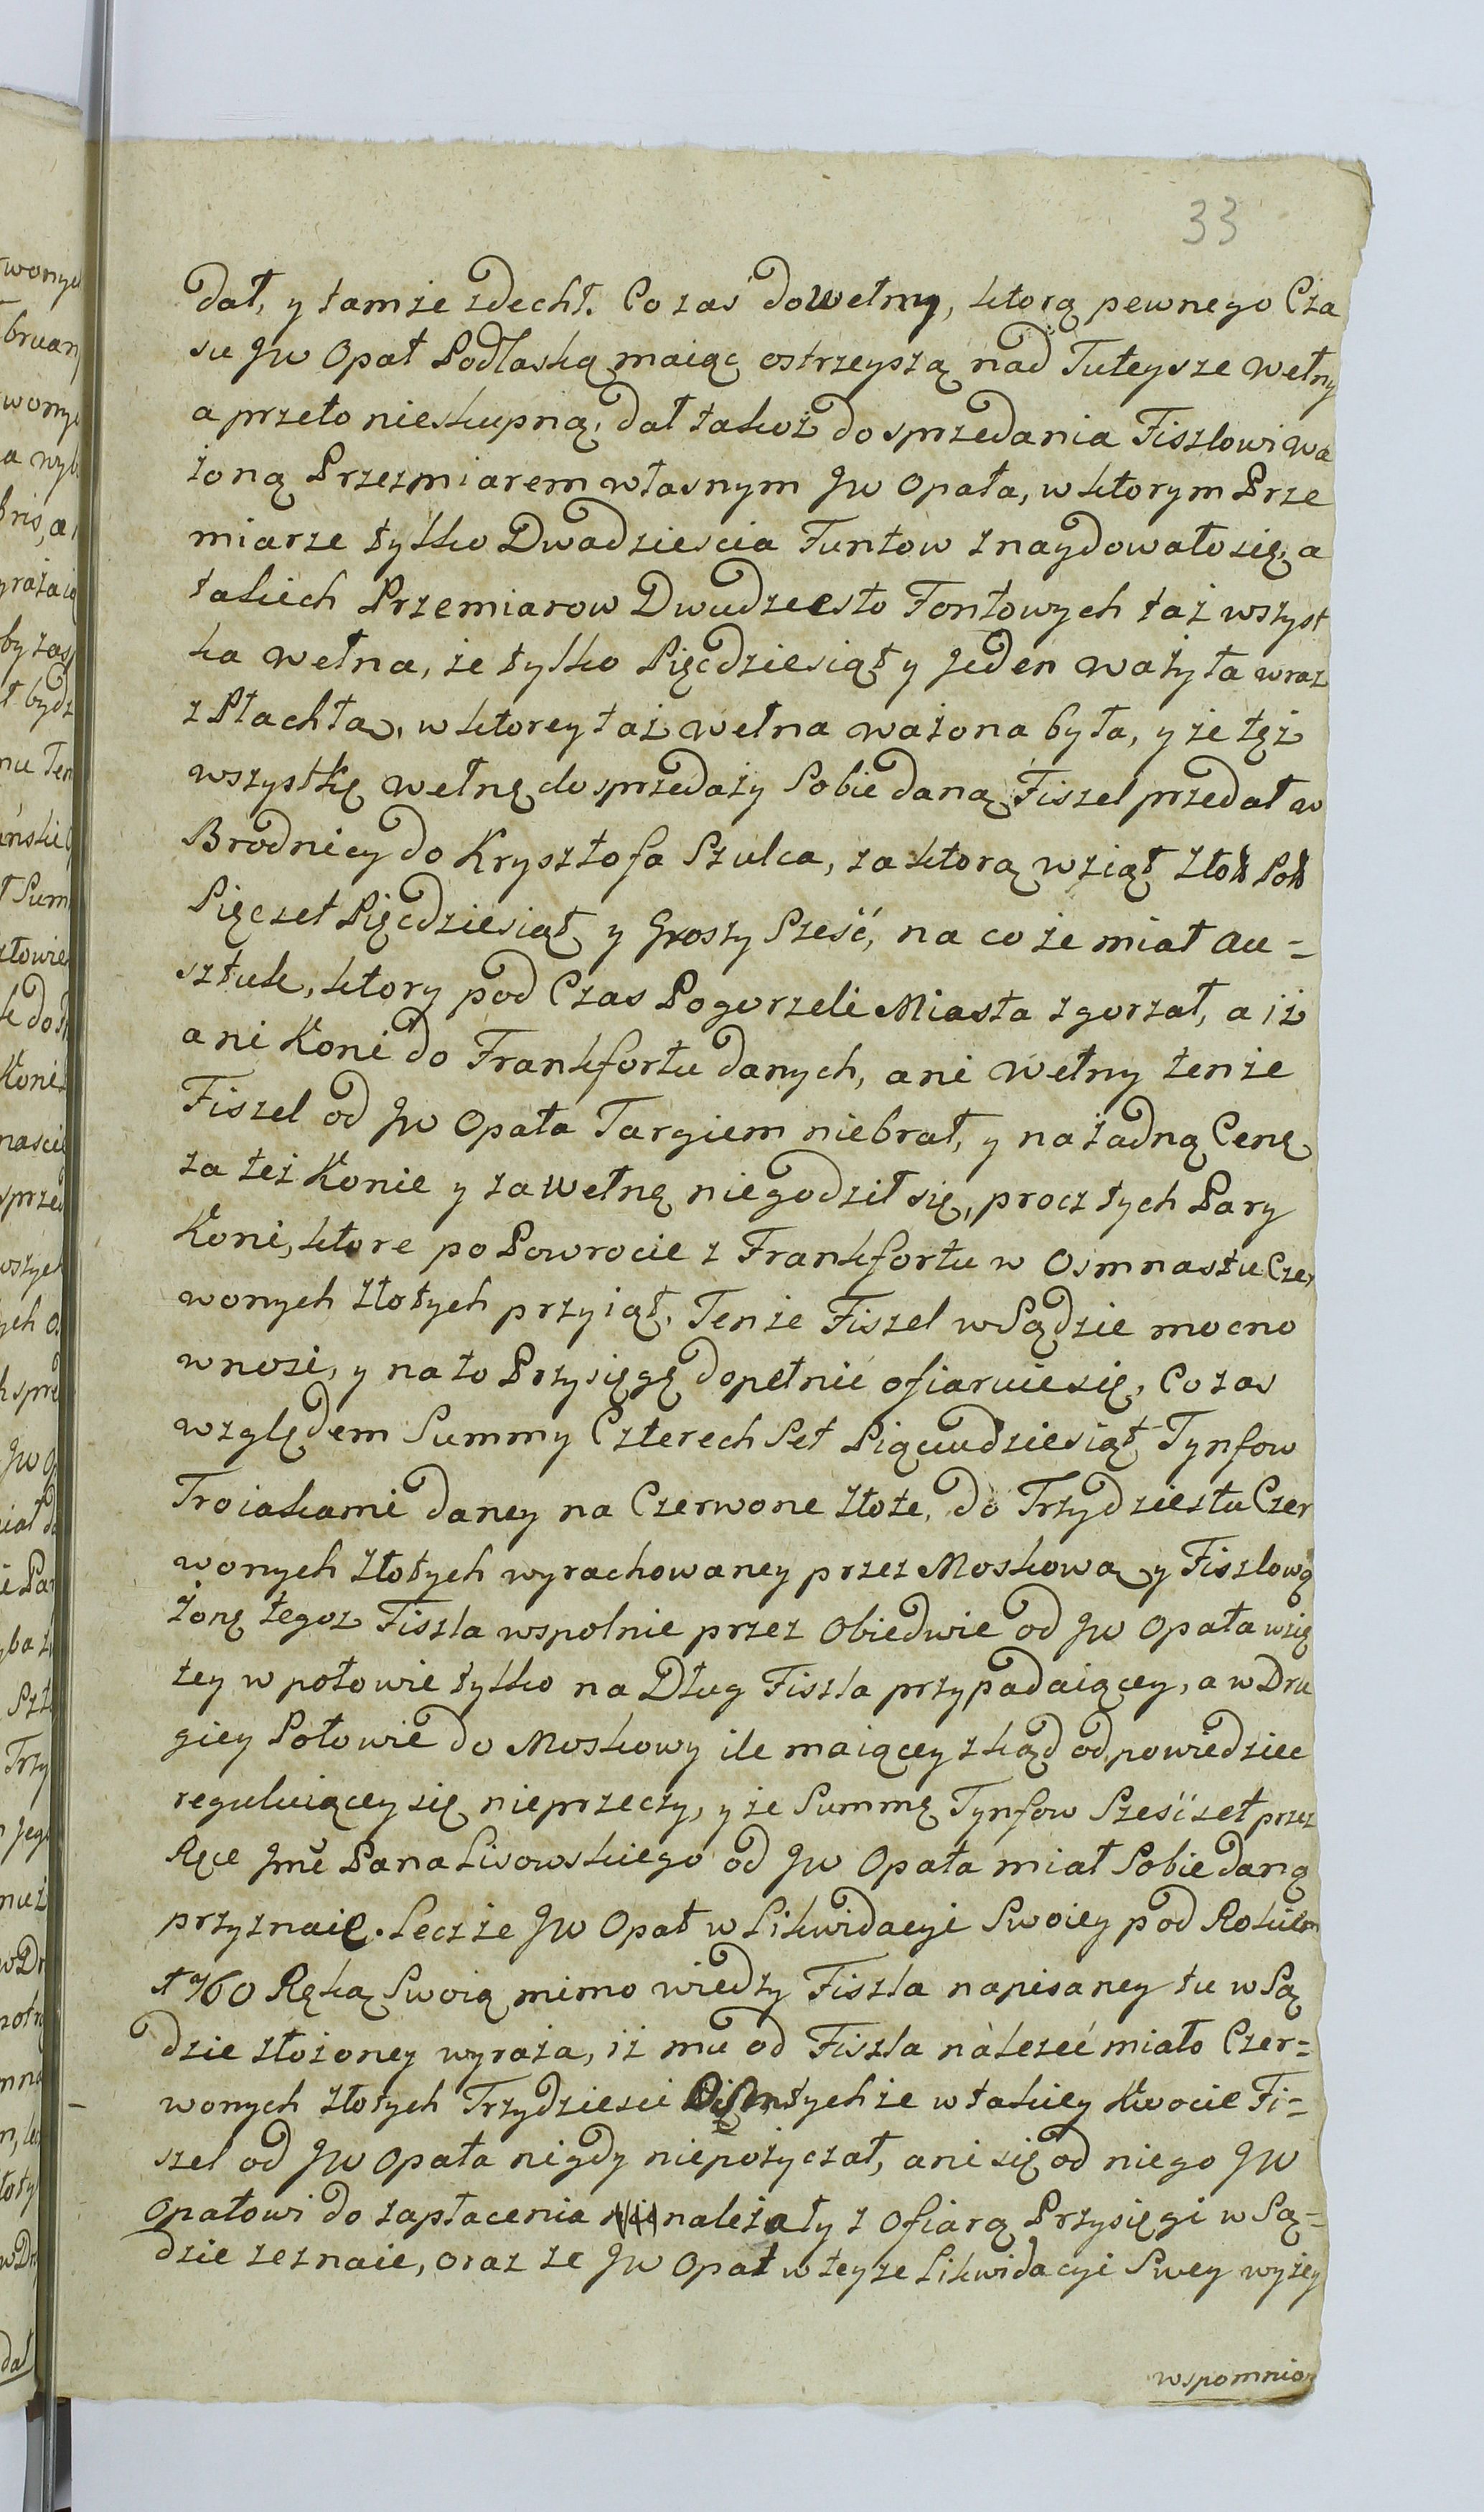 33
dał, y tamże zdechł. Co zaś do Wełny, ktorą pewnego Cza
su JW Opat Podlaską maiąc ostrzeyszą nad Tuteysze wełny
a przeto nieskupną, dał takoż do sprzedania Fiszlowi wa
żoną Przezmiarem własnym JW Opata, w ktorym Prze
miarze tylko Dwadziescia Funtow znaydowało się, a
takich Przemiarow Dwudziesto Fontowych taż wszyst
ka wełna, że tylko Pięcdziesiąt y Jeden ważyła wraz
z Płachtą, w ktorey taż wełna ważona była, y że tęż
wszystkę wełnę do sprzedaży Sobie daną Fiszel przedał w
Brodnicy do Krysztofa Szulca, za ktorą wziął Złotch Polch
Pięcset Pięcdziesiąt y Groszy Sześć, na co że miał Au=
sztuk, ktory pod Czas Pogorzeli Miasta zgorzał, a iż
ani Koni do Frankfortu danych, ani Wełny tenże
Fiszel od JW Opata Targiem niebrał, y na żadną Cenę
za też Konie y za Wełnę niegodził się, procz tych Pary
Koni, ktore po Powrocie z Frankfortu w Osmnastu Czer
wonych Złotych przyiął, Tenże Fiszel w Sądzie mocno
wnosi, y na to Przysięgę dopełnić ofiaruie się, Co zas
względem Summy Czterech Set Piąciudziesiąt Tynfow
Troiakami daney na Czerwone Złote, do Trzydziestu Czer
wonych Złotych wyrachowaney przez Moskową y Fiszlową
żonę tegoz Fiszla wspolnie przez Obiedwie od JW Opata wzię
tey w połowie tylko na Dług Fiszla przypadaiącey, a w Dru
giey Połowie do Moskowy ile maiącey zkąd odpowiedziec
reguluiącey się nieprzeczy, y że Summę Tynfow Sześćset przez
Ręce Jmć Pana Lisowskiego od JW Opata miał Sobie daną
przyznaie. Lecz że JW Opat w Likwidacyi Swoiey pod Rokiem
1760 Ręką Swoią mimo wiedzy Fiszla napisaney tu w Są
dzie złożoney wyraża, iż mu od Fiszla należeć miało Czer=
wonych Złotych Trzydziesci tychże w takiey Kwocie Fi=
szel od JW Opata nigdy niepożyczał, ani się od niego JW
Opatowi do zapłacenia należały z Ofiarą Przysięgi w Są=
dzie zeznaie, oraz że JW Opat w teyże Likwidacyi Swey wyżey
wspomnio